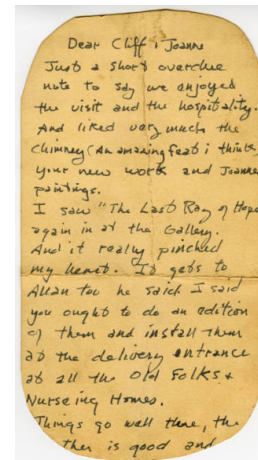 Dear Cliff & Joanne
Just a short overdue
note to say we enjoyed
the visit and the hospitality.
And liked very much the
chimney (An amazing feat i think,
your new work and Joannes
paintings.
I saw "The Last Ray of Hope
again in at the Gallery.
And it really pinched
my heart. It gets to
Allan too he said. I said
you ought to do an edition
of them and install them
at the delivery entrance
at all the Old Folks &
Nurseing Homes.
Things go well there, the
ther is good and